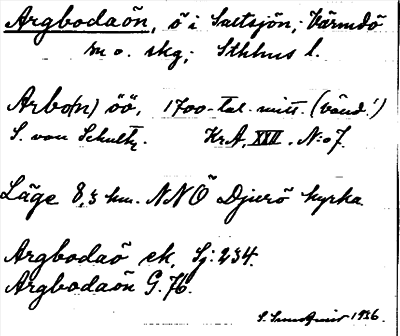 Argbodaön, ö i Saltsjön; Värmdö
m o. skg; Sthlms l.
Arbo(n) öö, 1700-tal. mitt. (vänd!)
S. von Schultz. KrA, XXII. N:o 7.
Läge 8,3 km. NNÖ Djurö kyrka
Argbodaö ek. Sj. 234.
Argbodaön G. 76.
1936.